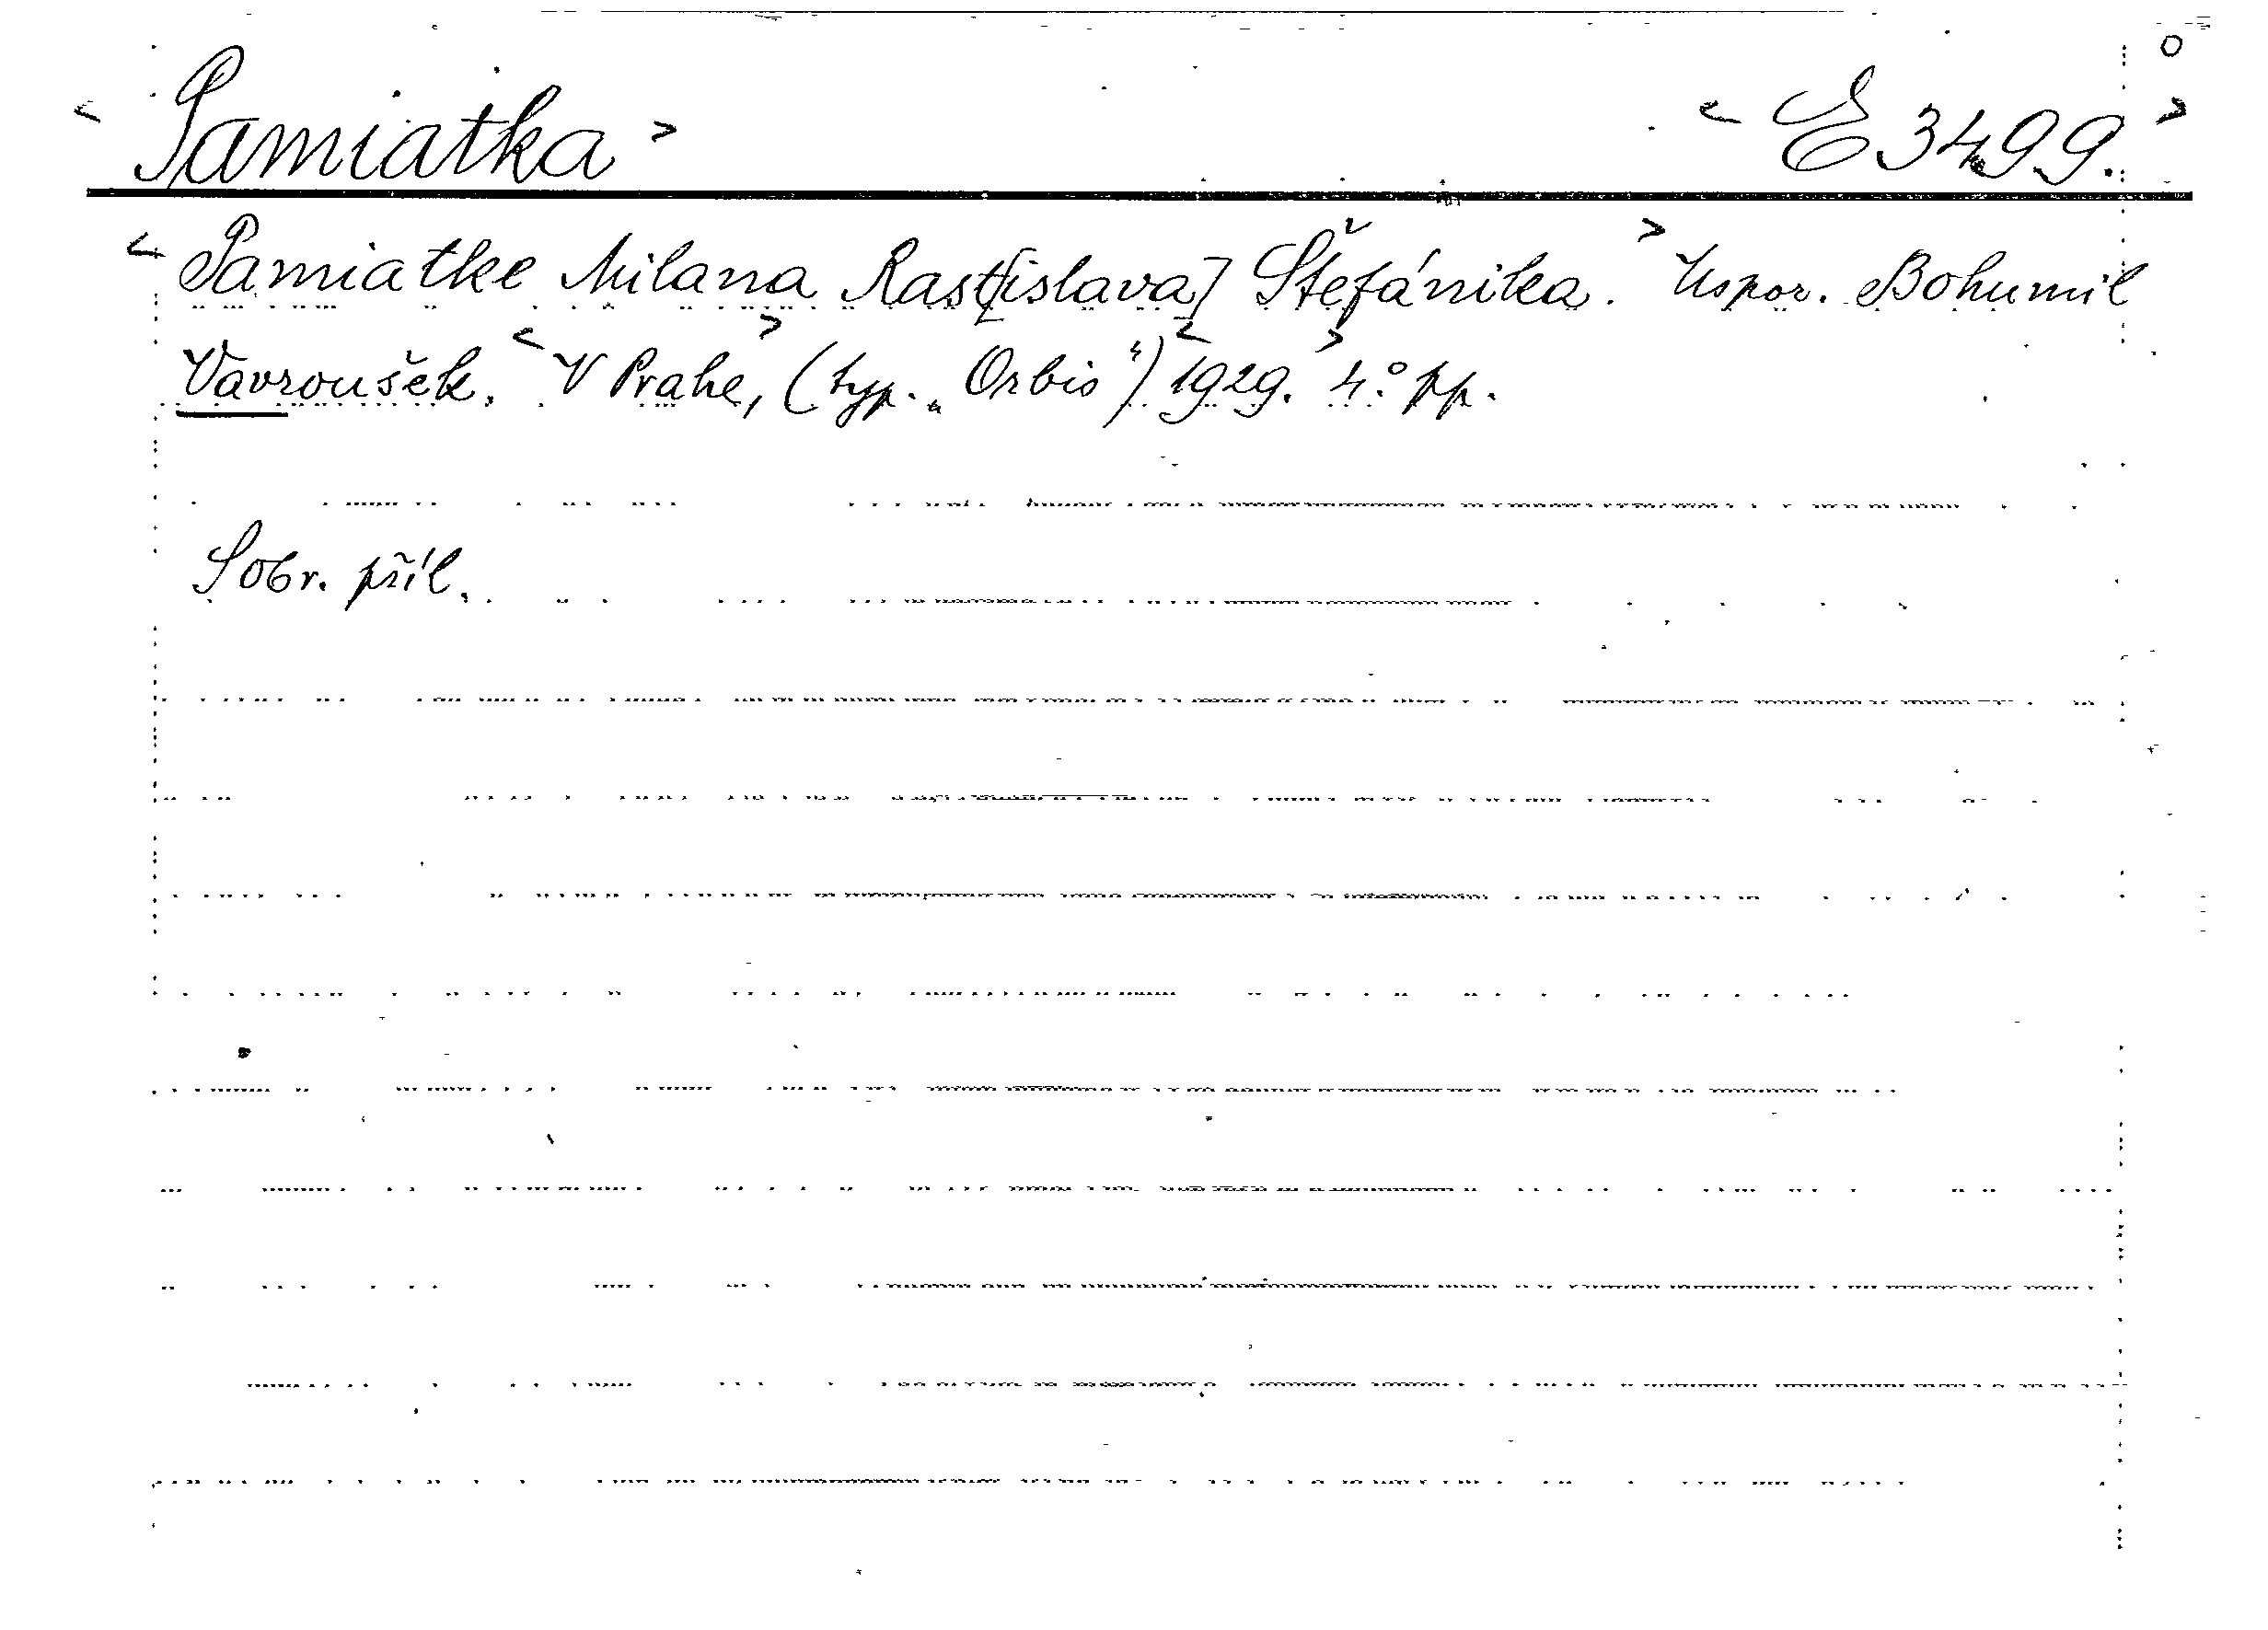 < Pamiatka > < E 3499. >
< Pamiatke Milana Rast[islava] Štefánika. > Uspor. Bohumil
Vavroušek. < V Praze, > (typ. „Orbis“) < 1929. > 4.° pp.
S obr. příl.